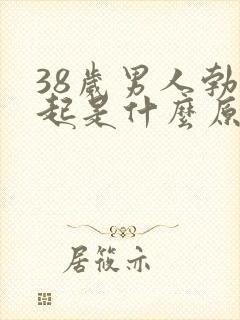 38歲男人勃
起是什麼原
居筱亦